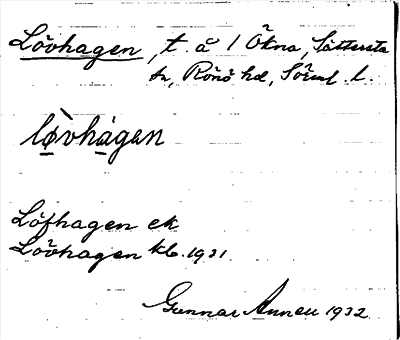 Lövhagen, t. å 1 Ökna, Sättersta
sn, Rönö hd, Söml. l.
lø̀vhagen
Löfhagen ek
Lövhagen kb. 1931
Gunnar Anneu 1932